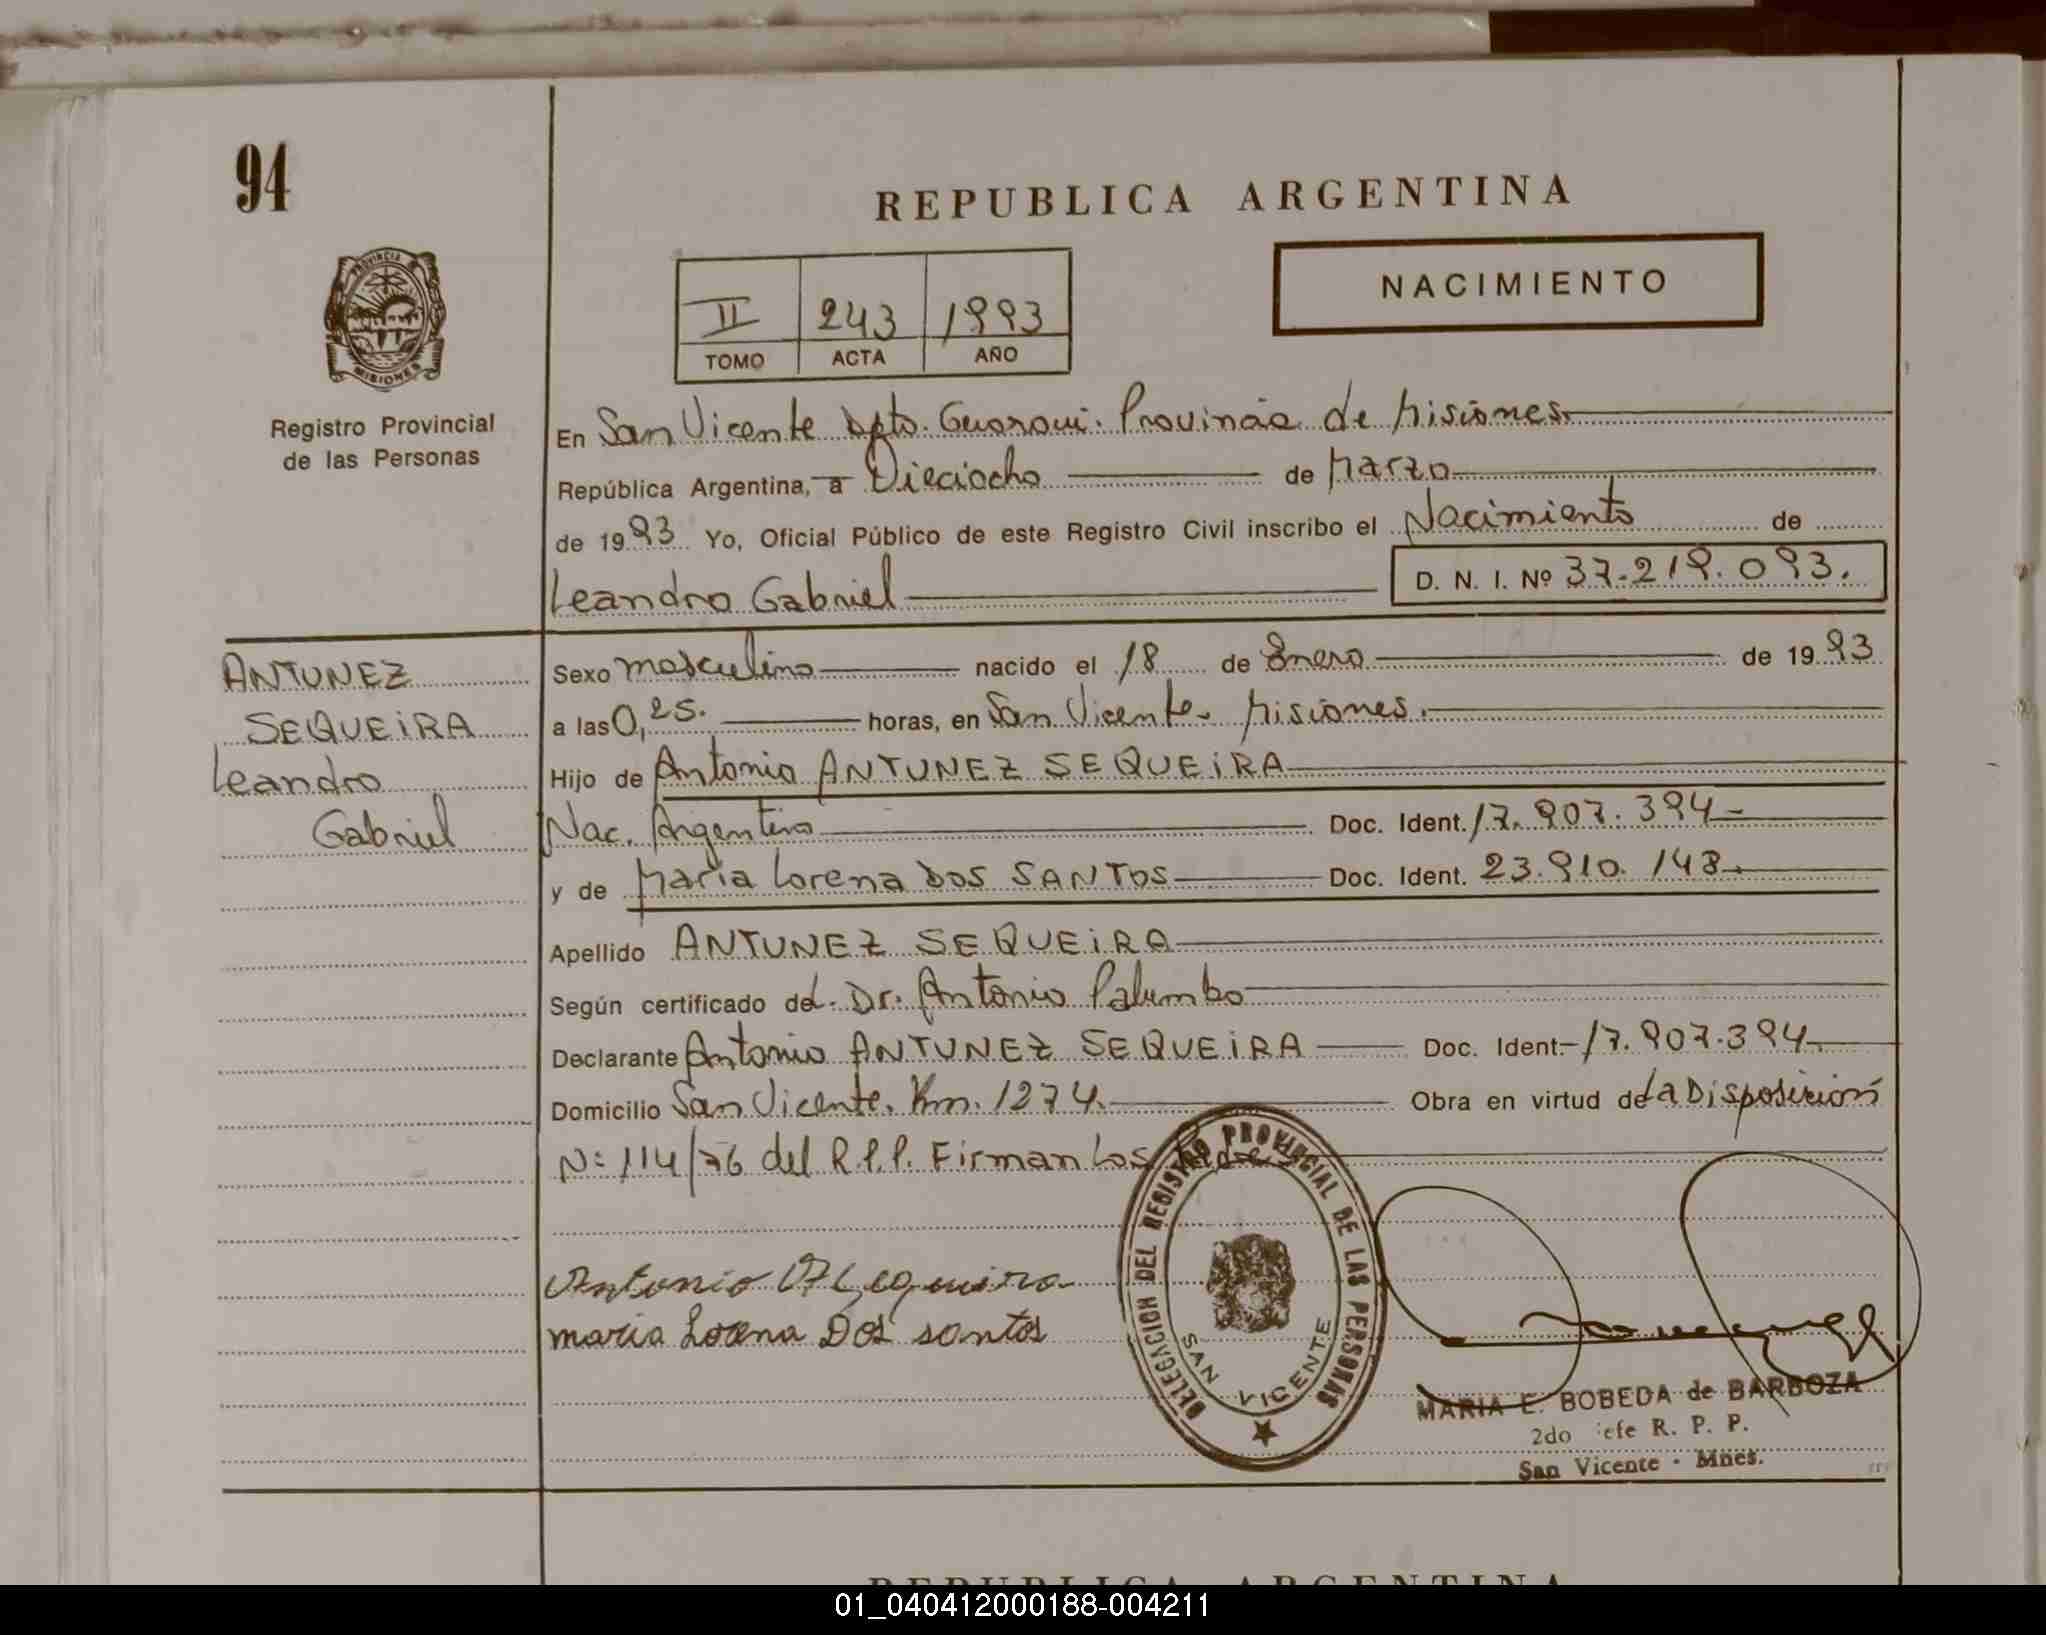 94
REPUBLICA ARGENTINA
NACIMIENTO
II 243 1993
TOMO ACTA AÑO
PROVINCIA
MISIONES
Registro Provincial
de las Personas
En San Vicente Dpto. Guaraní. Provincia de Misiones.
República Argentina, a Dieciocho de Marzo
de 1993 Yo, Oficial Público de este Registro Civil inscribo el Nacimiento de
Leandro Gabriel D. N. I. Nº 37.219.093.
ANTUNEZ
SEQUEIRA
Leandro
Gabriel
Sexo masculino nacido el 18 de Enero de 1993
a las 0,25. horas, en San Vicente. Misiones.
Hijo de Antonio ANTUNEZ SEQUEIRA
Nac. Argentino Doc. Ident. 17.907.394
y de Maria Lorena DOS SANTOS Doc. Ident. 23.910.148.
Apellido ANTUNEZ SEQUEIRA
Según certificado del. Dr. Antonio Palumbo
Declarante Antonio ANTUNEZ SEQUEIRA Doc. Ident. 17.907.394.
Domicilio San Vicente. Km. 1274. Obra en virtud de La Disposición
Nº 114/76 del R.P.P. Firman Los Padres
Antonio A Sequeira
maria Lorena Dos santos
DELEGACION DEL REGISTRO PROVINCIAL DE LAS PERSONAS
SAN VICENTE
MARIA E. BOBEDA de BARBOZA
2do Jefe R. P. P.
San Vicente - Mnes.
REPUBLICA ARGENTINA
01_040412000188-004211